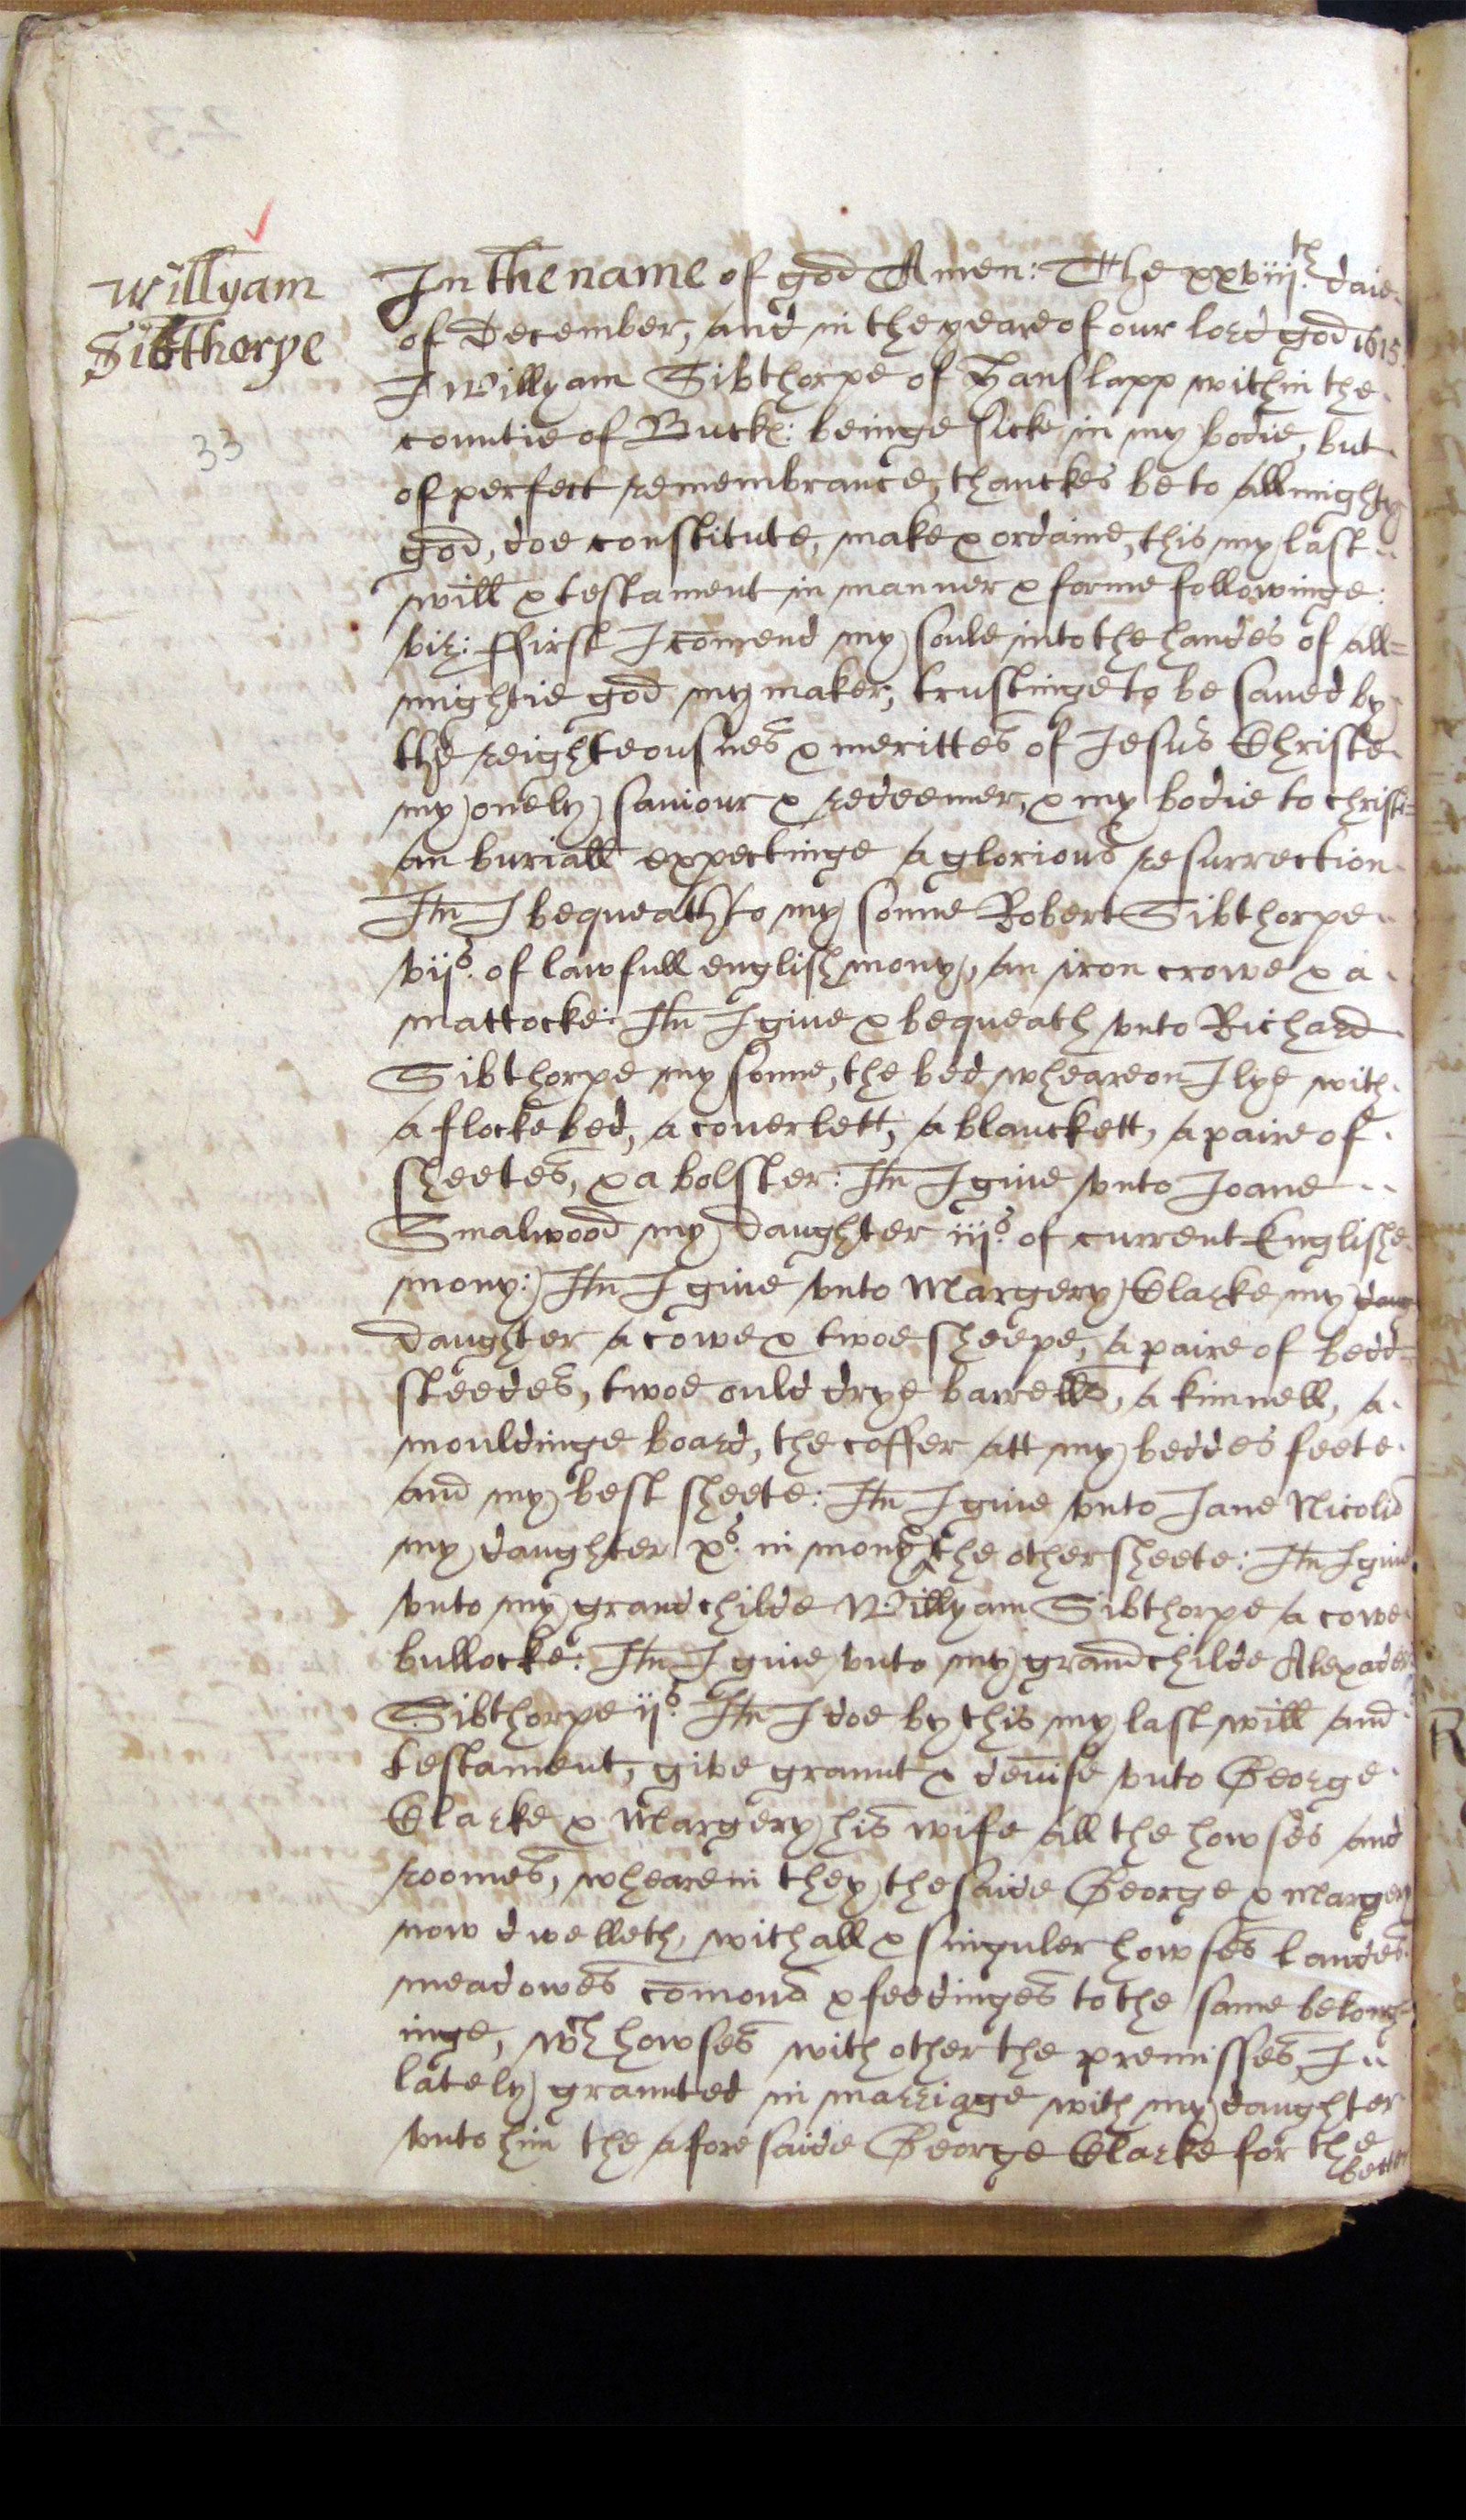 Willyam
Sibthorpe
33
In the name of god Amen: The xxviijth. daie
of December, and in the yeare of our lord god 1615.
I Willyam Sibthorpe of Hanslapp within the
countie of Buck: beinge sicke in my bodie, but
of perfect remembrance, thanckes be to allmighty
god, doe constitute, make & ordaine, this my last
will & testament in manner & forme followinge:
viz: ffirst I comend my soule into the handes of all=
mightie god my maker, trustinge to be saved by
the reighteousnes & merittes of Jesus Christe
my onely saviour & redeemer, & my bodie to christi=
an buriall expectinge a glorious resurrection
Itm I bequeath to my sonne Robert Sibthorpe
vijs. of lawfull english mony, an iron crowe & a
mattocke: Itm I giue & bequeath vnto Richard
Sibthorpe my sonne, the bed wheareon I lye with
a flocke bed, a couerlett, a blanckett, a paire of
sheetes, & a bolster: Itm I giue vnto Joane
Smalwood my daughter iijs. of current Englishe
mony: Itm I giue vnto Margery Clarke my daug
daughter a cowe & twoe sheepe, a paire of bedd=
steedes, twoe ould drye barrells, a kimnell, a
mouldinge board, the coffer att my beddes feete
and my best sheete: Itm I giue vnto Jane Nicolls
my daughter xs. in mony & the other sheete: Itm I giue
vnto my grandchilde Willyam Sibthorpe a cowe
bullocke: Itm I giue vnto my grandchilde Alexader
Sibthorpe ijs. Itm I doe by this my last will and
testament, give graunt & deuise vnto George
Clarke & Margery his wife all the howses and
roomes, whearein they the saide George & Margery
now dwelleth, with all & singuler howses landes
meadowes comons & feedinges to the same belong=
inge, wch howses with other the premisses, I
lately graunted in marriage with my daughter
vnto him the aforesaide George Clarke for the
better